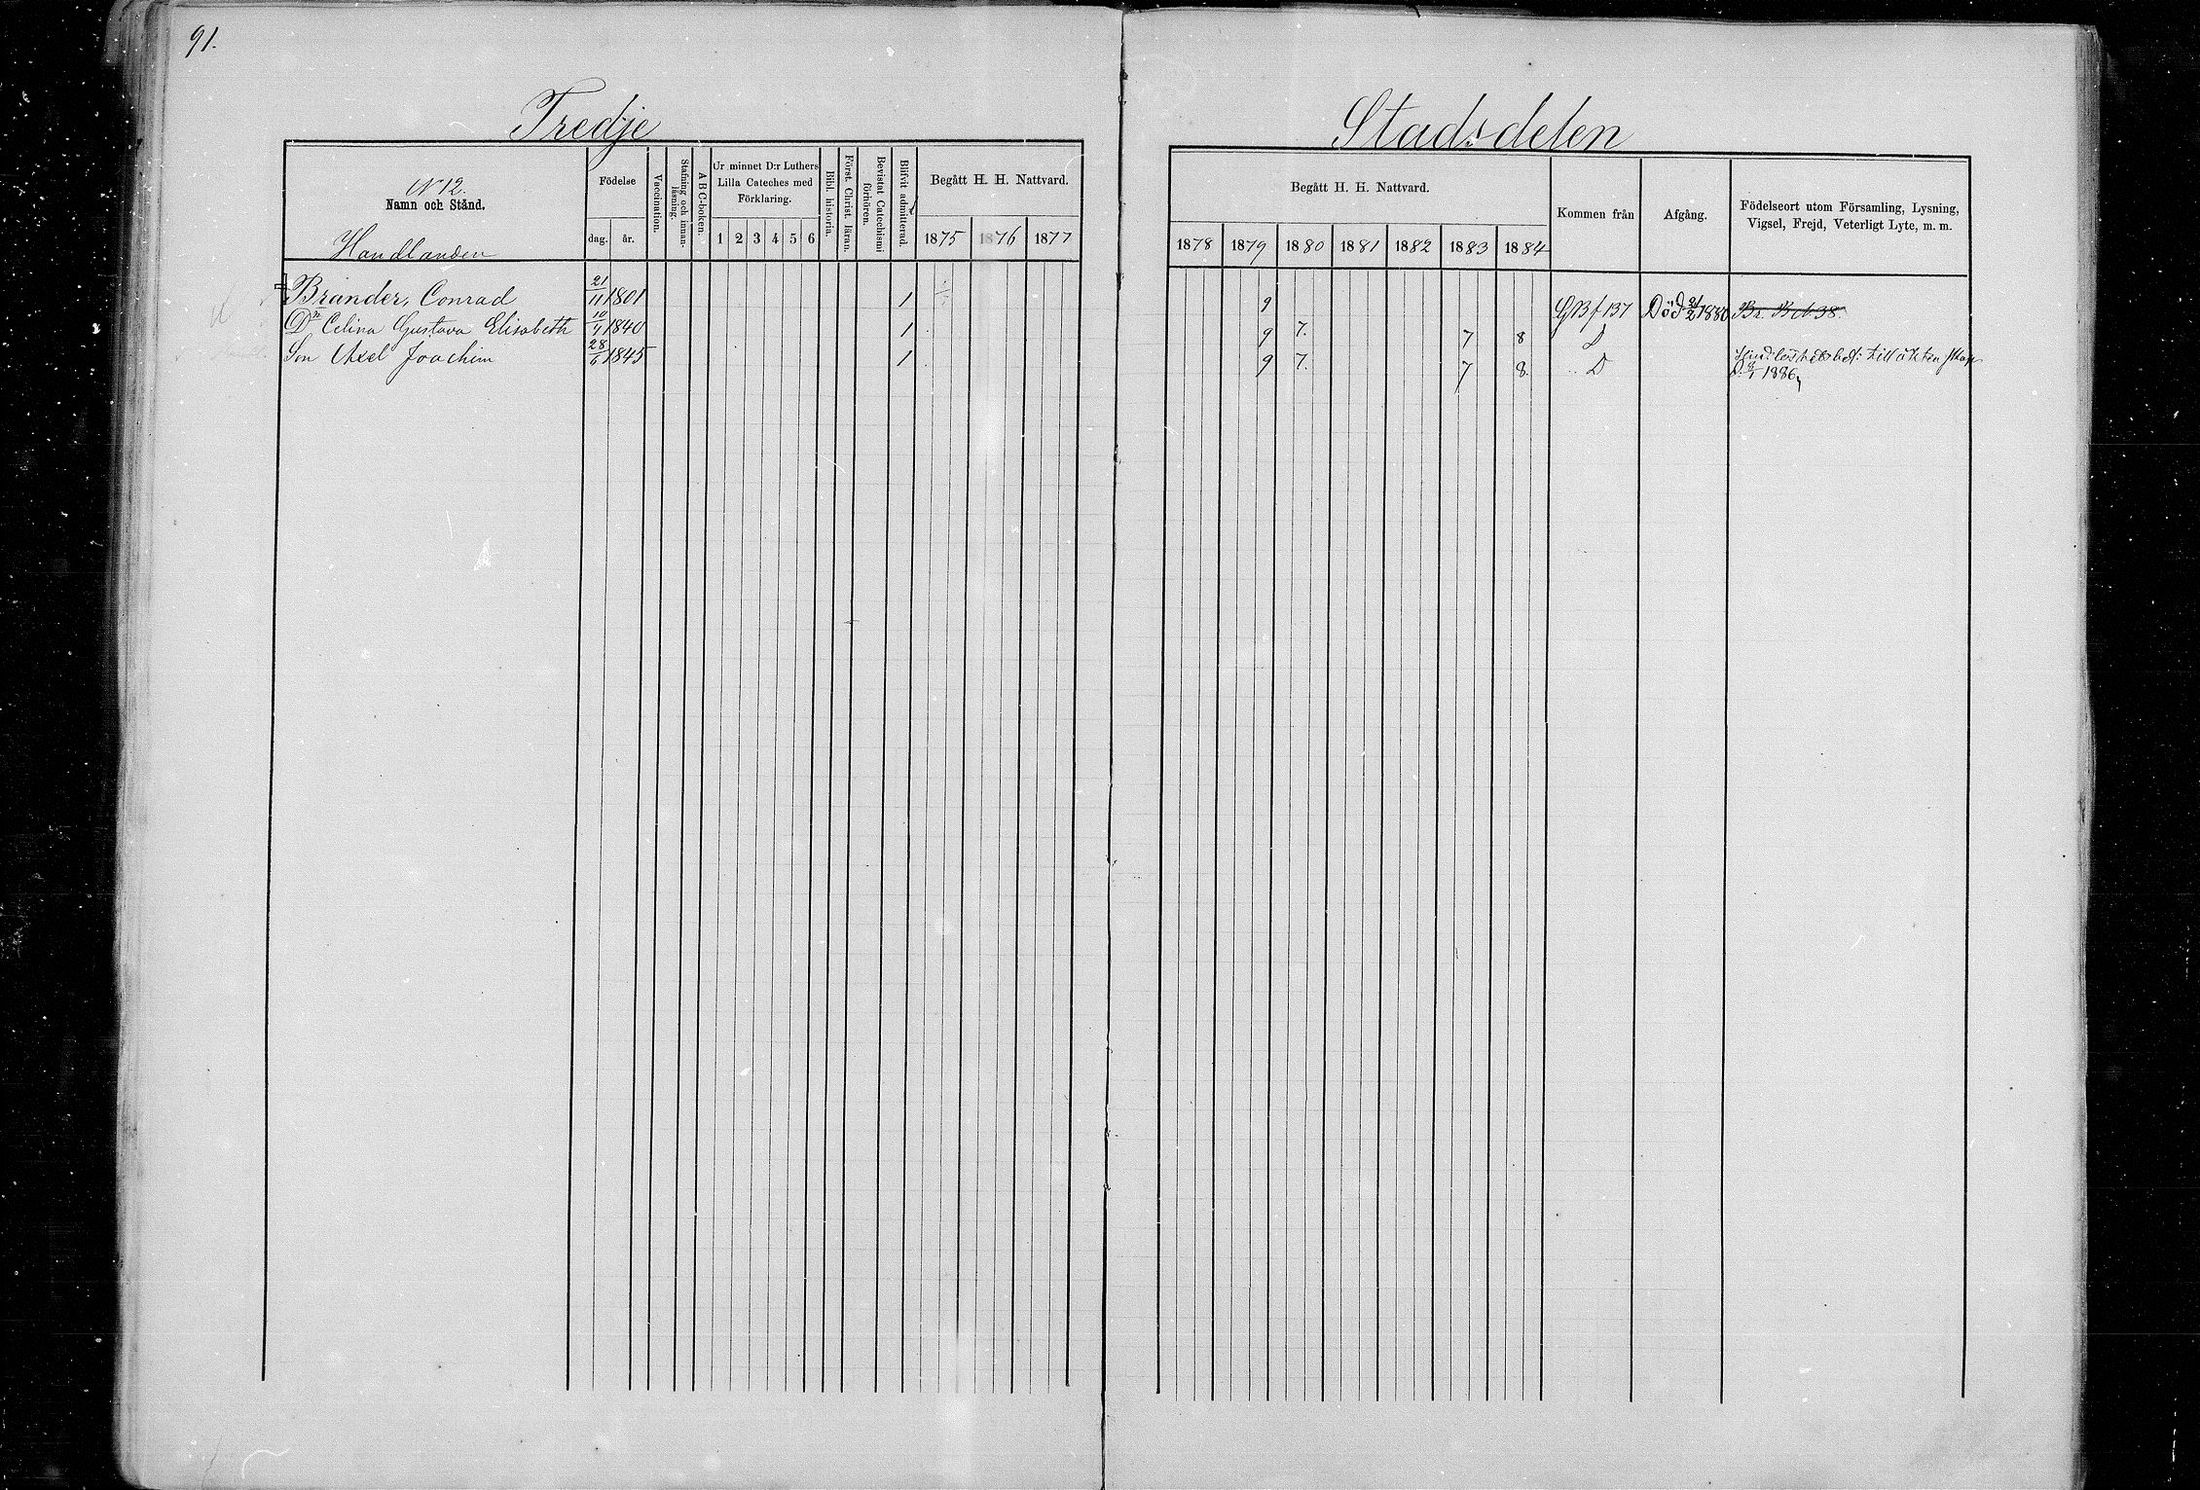 91.
Tredje
Stadsdelen
N 12.
Namn och Stånd.
Handlanden
Födelse
dag. år.
Vaccination.
Stafning och innanläsning.
A B C-boken.
Ur minnet D:r Luthers Lilla Cateches med Förklaring.
1 2 3 4 5 6
Bibl. historia.
Först. Christ. läran.
Bevistat Catechismi förhören.
Blifvit admitterad.
Begått H. H. Nattvard.
1875 1876 1877
Begått H. H. Nattvard.
1878 1879 1880 1881 1882 1883 1884
Kommen från
Afgång.
Födelseort utom Församling, Lysning, Vigsel, Frejd, Veterligt Lyte, m. m.
Brander, Conrad 21/11 1801 1 9 f 137 Död 1880
Dr Celina Gustava Elisabeth 10/4 1840 1 9 7. 7 8 D
Son Axel Joachim 28/6 1845 1 9 7. 7 8. D till äktenskap
1886